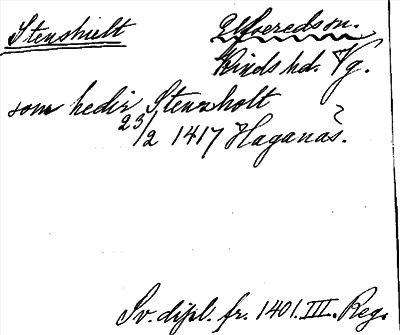 Stenshult Ulfoeredson.
Kinds hd. Vg.
som hedir Stensholt
23/2 1417 Haganäs?
Sv. dipl. fr. 1401. III. Reg.